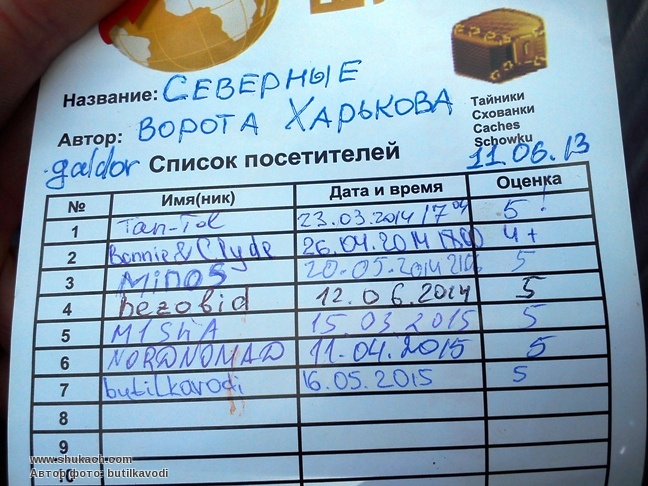 Название: СЕВЕРНЫЕ
Автор: ВОРОТА ХАРЬКОВА
Тайники
Схованки
Caches
Schowku
galdor Список посетителей 11.06.13
№ Имя(ник) Дата и время Оценка
1 Tan-Tol 23.03.2014 17 04 5!
2 Bonnie & Clyde 26.04.2014 4+
3 Minos 20.05.2014 5
4 bezobid 12.06.2014 5
5 MISHA 15 03 2015 5
6 NORDNOMAD 11.04.2015 5
7 butilkavodi 16.05.2015 5
8
9
10
www.shukach.com
Автор фото: butilkavodi